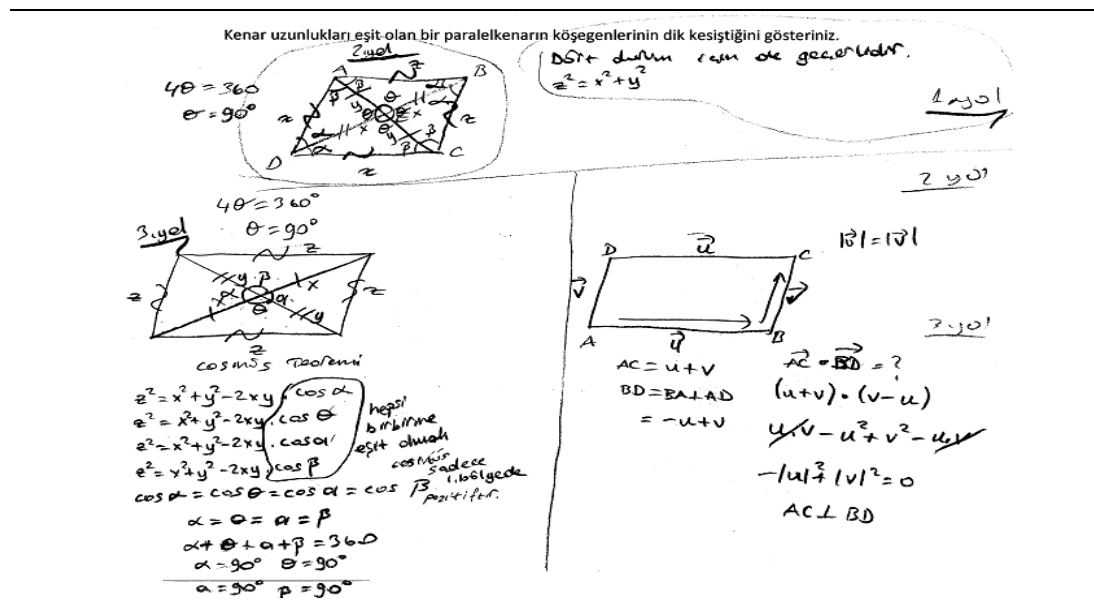 Kenar uzunlukları eşit olan bir paralelkenarın köşegenlerinin dik kesiştiğini gösteriniz.
2.yol
A z B
β β θ α
4θ = 360
θ = 90°
z y θ θ x z
α x θ y β
D α β C
z
durum için de geçerlidir.
z² = x² + y²
1 yol
4θ = 360°
θ = 90°
3.yol
z
y β x
z α a z
x θ y
z
cosinüs Teoremi
z² = x² + y² - 2xy . cos α
z² = x² + y² - 2xy . cos θ
z² = x² + y² - 2xy . cos a
z² = x² + y² - 2xy . cos β
hepsi
birbirine
eşit olmalı
cosinüs
sadece
1.bölgede
pozitiftir.
cos α = cos θ = cos a = cos β
α = θ = a = β
α + θ + a + β = 360
α = 90° θ = 90°
a = 90° β = 90°
2 yol
D u C
v v
A u B
|u| = |v|
3 yol
AC = u + v
BD = BA + AD
= -u + v
AC • BD = ?
(u+v) • (v-u)
u.v - u² + v² - u.v
-|u|² + |v|² = 0
AC ⊥ BD